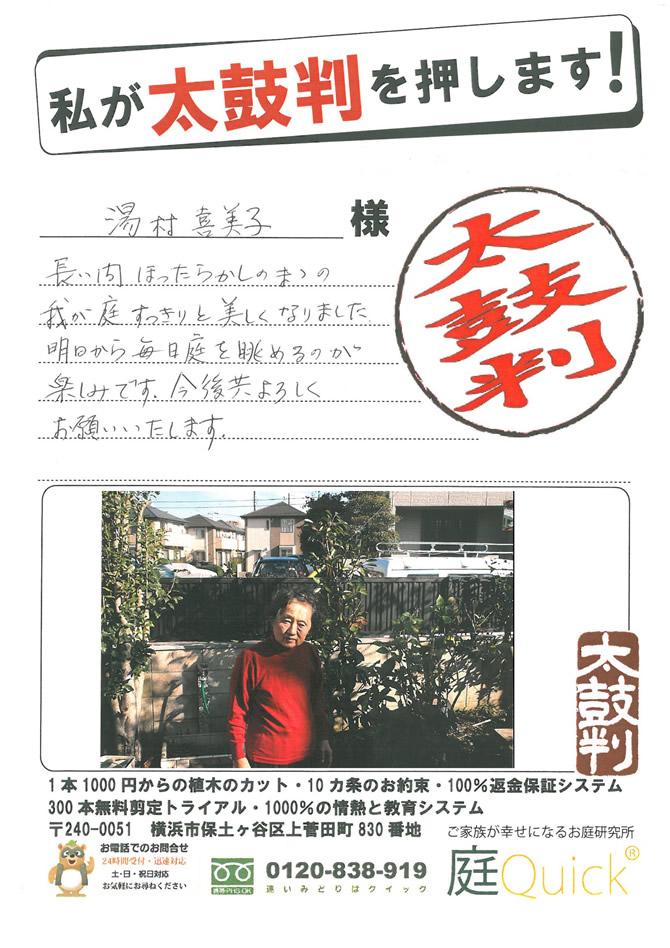 私が太鼓判を押します!
湯村喜美子 様
太鼓判
長い間ほったらかしのまゝの
我が庭すっきりと美しくなりました
明日から毎日庭を眺めるのが
楽しみです。今後共よろしく
お願いいたします。
太鼓判
1本1000円からの植木のカット・10カ条のお約束・100%返金保証システム
300本無料剪定トライアル・1000%の情熱と教育システム
〒240-0051 横浜市保土ヶ谷区上菅田町830番地
ご家族が幸せになるお庭研究所
お電話でのお問合せ
24時間受付・迅速対応
土・日・祝日対応
お気軽にお尋ねください
携帯・PHS OK
0120-838-919
速いみどりはクイック
庭Quick®